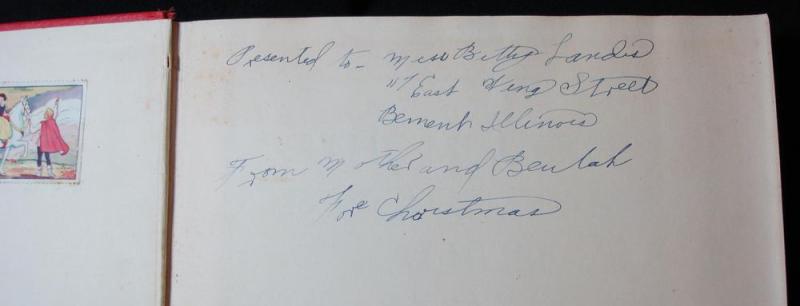 Presented to - Miss Betty Landis
117 East King Street
Bement Illinois
From Mother and Beulah
For Christmas